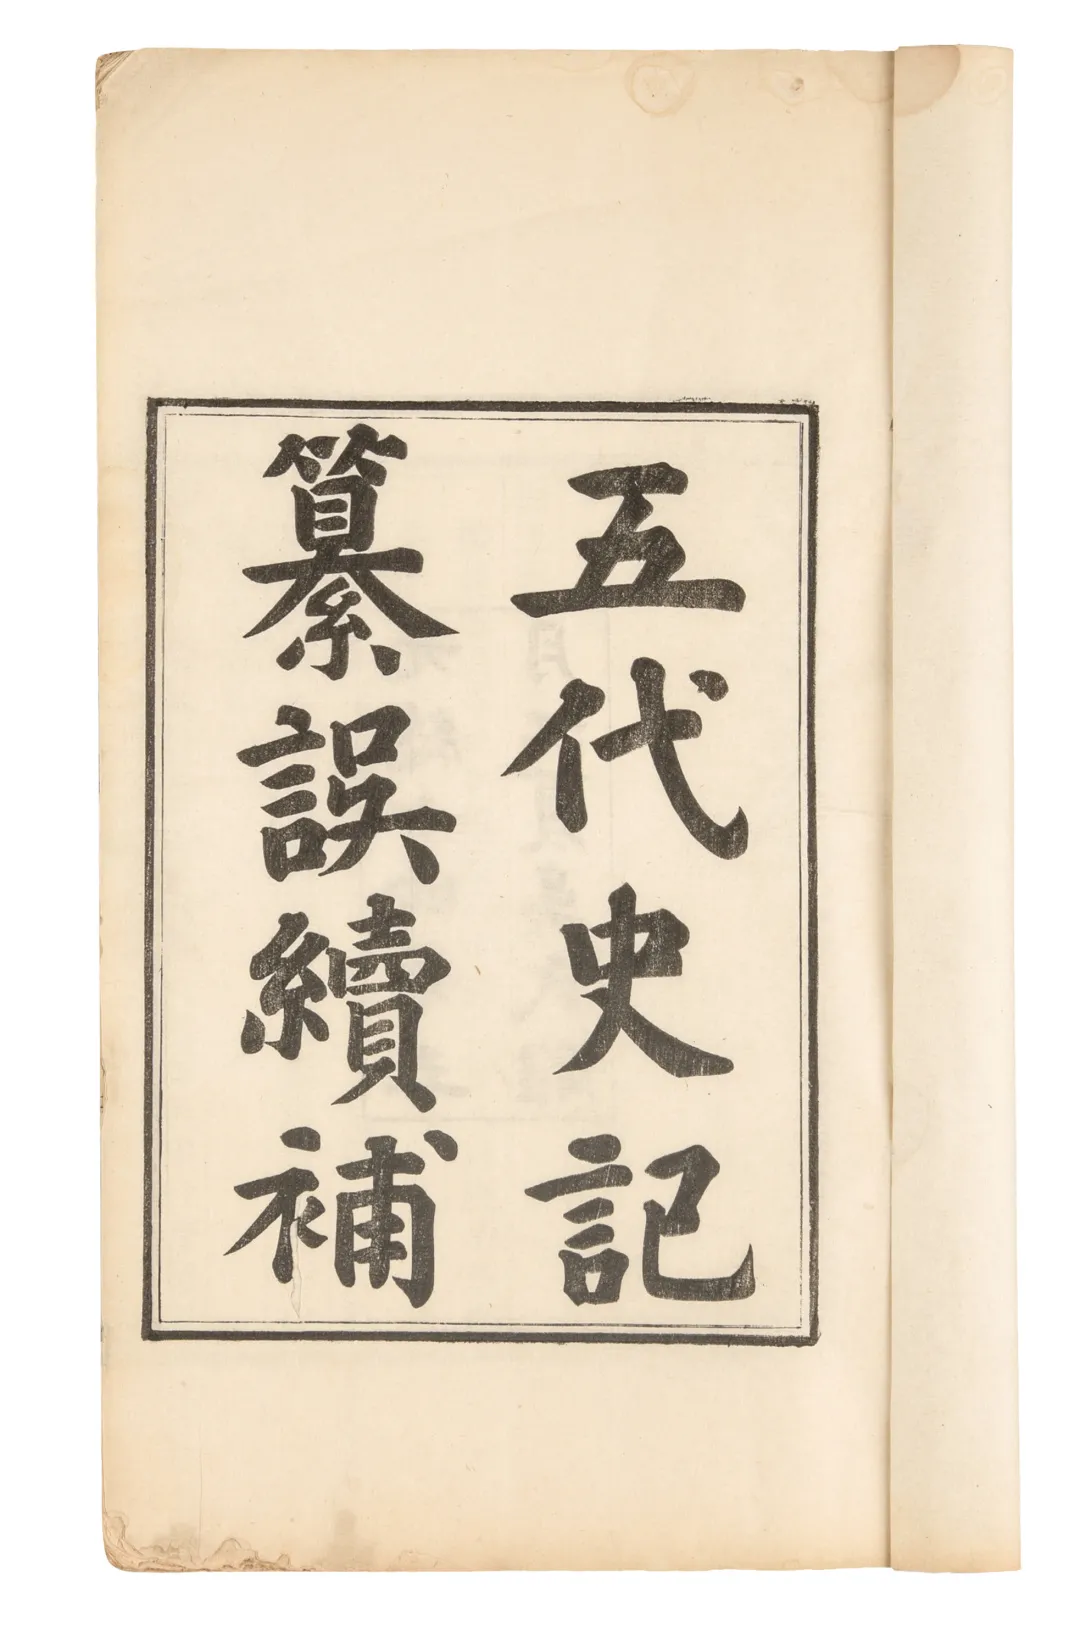 五代史記
纂誤續補